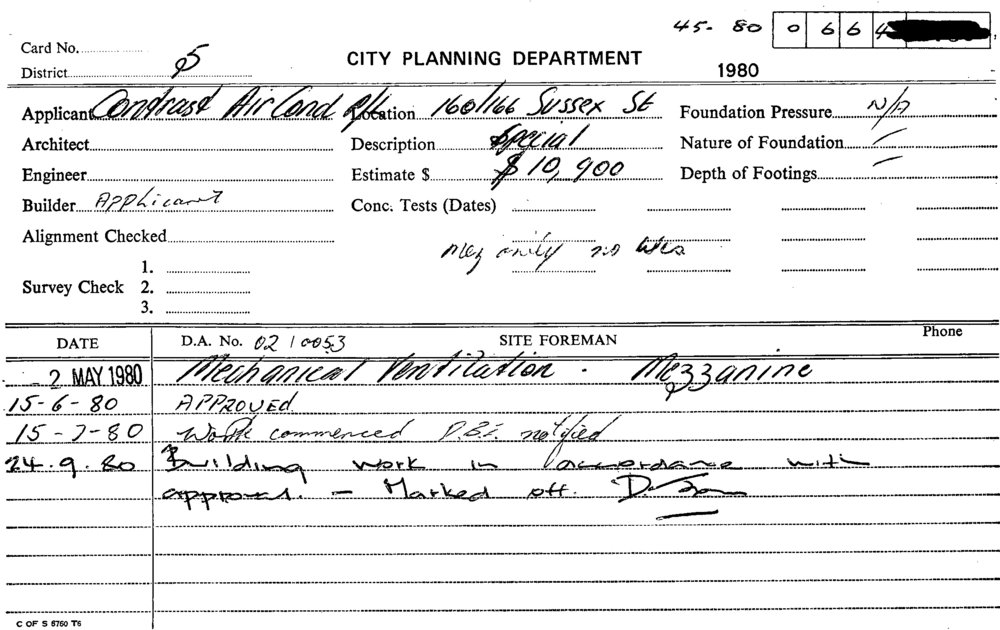 45-80 0 6 6 4
Card No.
CITY PLANNING DEPARTMENT
District 5
1980
Applicant Contrast Air Cond P/L Location 160/166 Sussex St Foundation Pressure N/A
Architect Description Special Nature of Foundation
Engineer Estimate $ $10,900 Depth of Footings
Builder Applicant Conc. Tests (Dates)
Alignment Checked
Mez only no
1.
Survey Check 2.
3.
DATE D.A. No. 02 10053 SITE FOREMAN Phone
2 MAY 1980 Mechanical Ventilation - Mezzanine
15-6-80 APPROVED
15-7-80 Work commenced D.B.I. notified
24.9.80 Building work in accordance with
approval. - Marked off. D.
C OF S 6760 T6